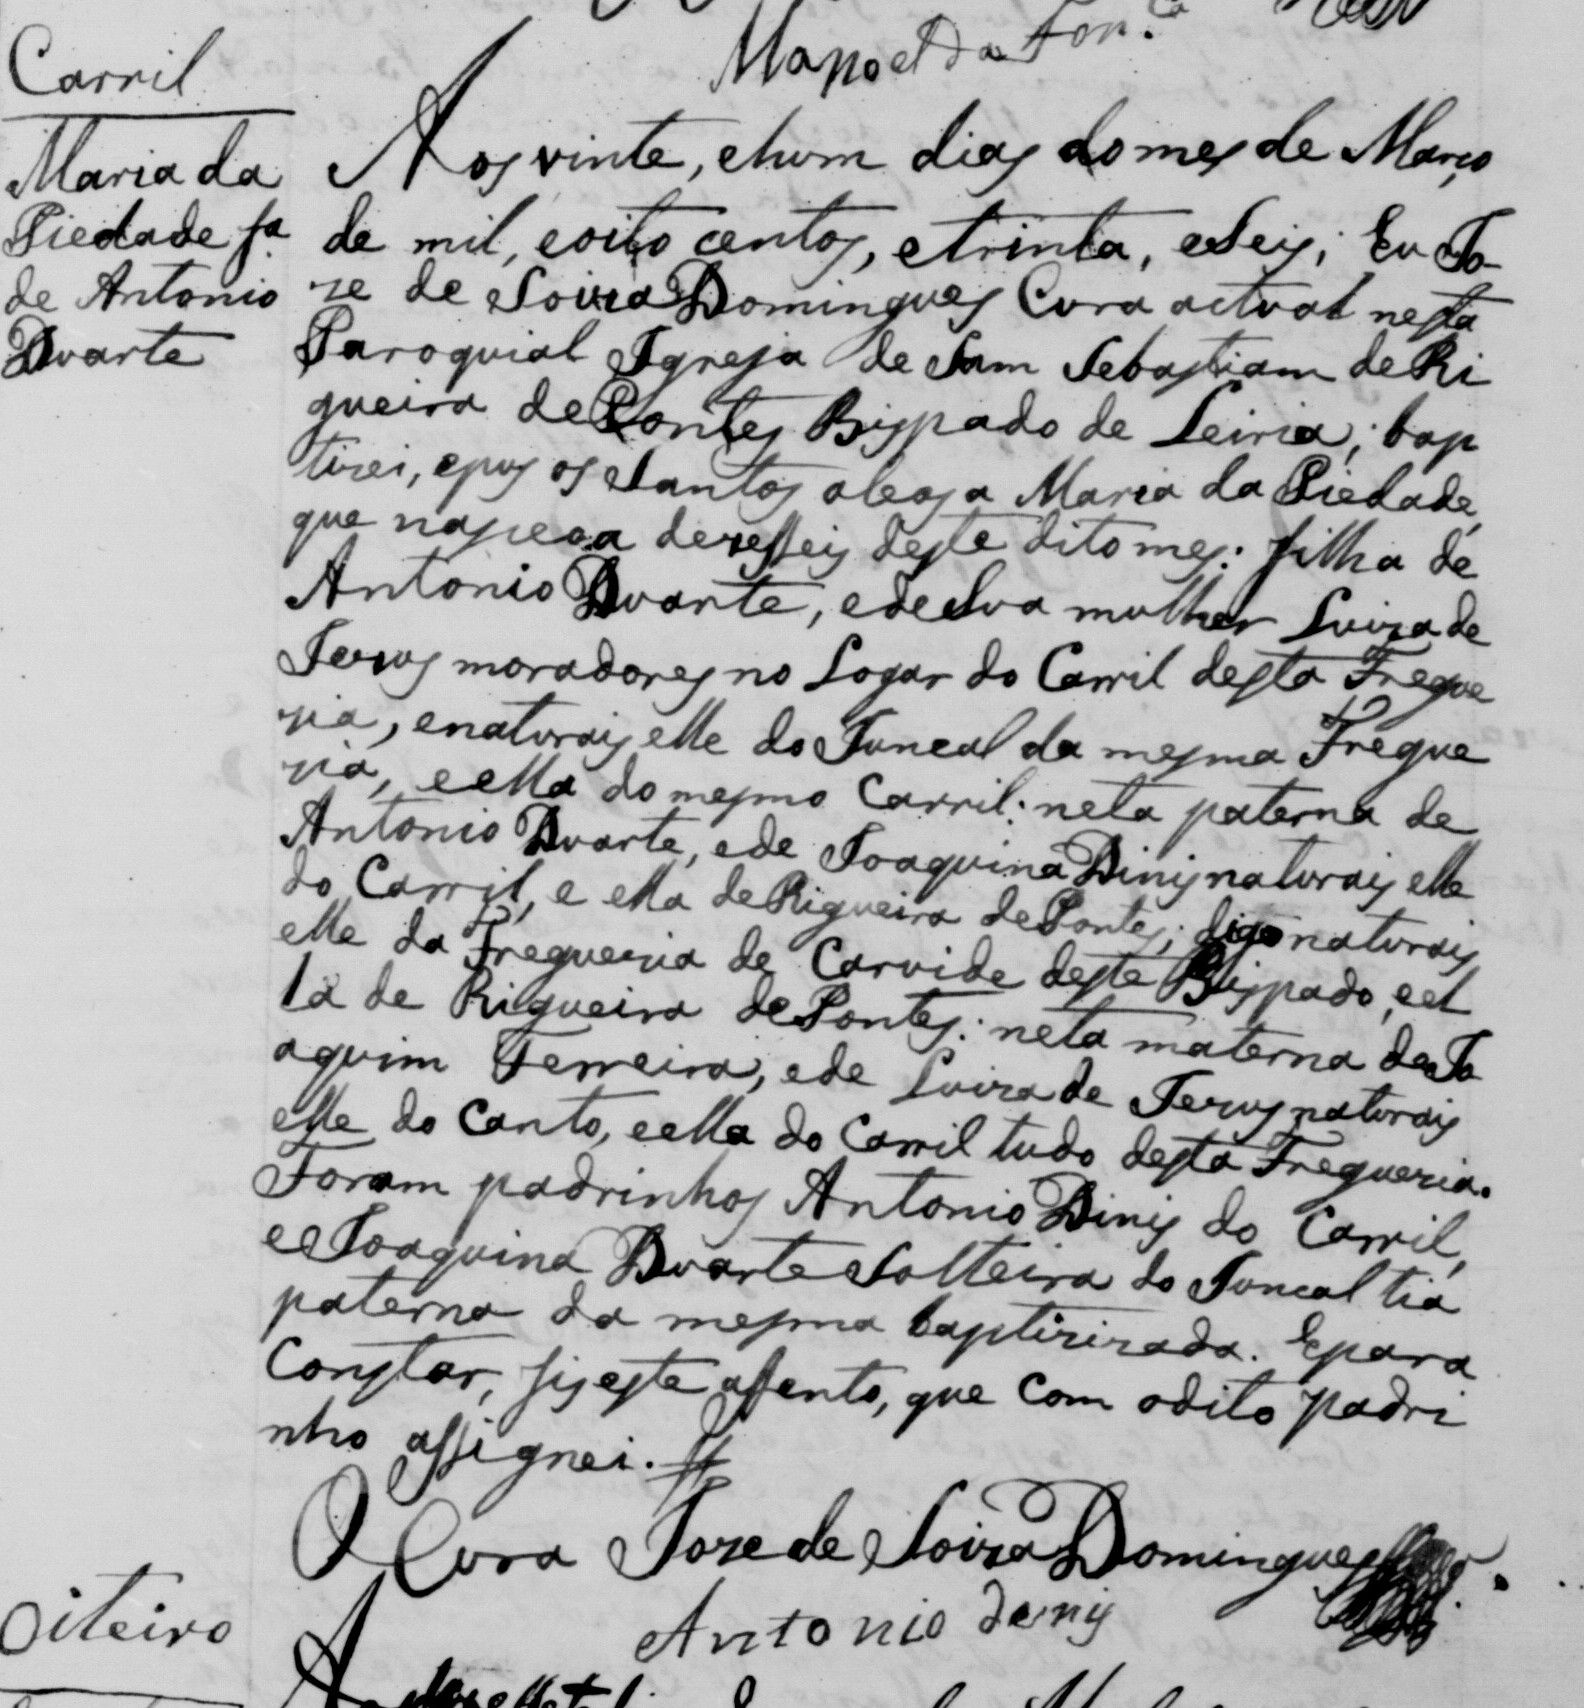 Manoel da Fonca
Carril
Maria da
Piedade fa
de Antonio
Duarte
Aos vinte, ehum dias do mes de Março
de mil, eoito centos, etrinta, eseis; Eu Jo-
ze de Soiza Domingues Cura actual nesta
Paroquial Igreja de Sam Sebastiam de Ri
gueira de Pontes Bispado de Leiria; bap
tizei, epus os Santos oleos a Maria da Piedade,
que nasceo a dezesseis deste dito mes: filha de
Antonio Duarte, ede sua mulher Luiza de
Jezus moradores no Logar do Carril desta Fregue
zia, enaturais elle do Juncal da mesma Fregue
zia, eella do mesmo Carril: neta paterna de
Antonio Duarte, ede Joaquina Dinis naturais elle
do Carril, e ella de Rigueira de Pontes; digo naturais
elle da Freguezia de Carvide deste Bispado, eel
la de Rigueira de Pontes: neta materna de Jo
aquim Ferreira, ede Luiza de Jezus naturais
elle do Canto, eella do Carril tudo desta Freguezia.
Foram padrinhos Antonio Dinis do Carril,
e Joaquina Duarte Solteira do Juncal tia
paterna da mesma baptizizada. Epara
Constar, fis este assento, que com odito padri
nho assignei.
O Cura Joze de Soiza Domingues
Antonio denis
Oiteiro